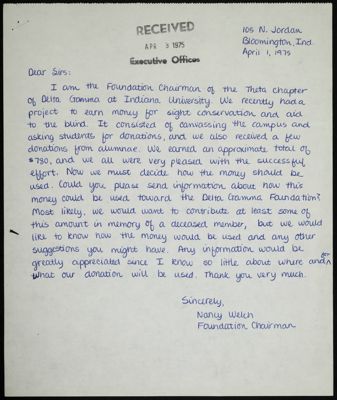 RECEIVED
APR 3 1975
Executive Offices
105 N. Jordan
Bloomington, Ind.
April 1, 1975
Dear Sirs:
I am the Foundation Chairman of the Theta chapter
of Delta Gamma at Indiana University. We recently had a
project to earn money for sight conservation and aid
to the blind. It consisted of canvassing the campus and
asking students for donations, and we also received a few
donations from alumnae. We earned an approximate total of
$790, and we all were very pleased with the successful
effort. Now we must decide how the money should be
used. Could you please send information about how this
money could be used toward the Delta Gamma Foundation?
Most likely, we would want to contribute at least some of
this amount in memory of a deceased member, but we would
like to know how the money would be used and any other
suggestions you might have. Any information would be
greatly appreciated since I know so little about where and for
what our donation will be used. Thank you very much.
Sincerely,
Nancy Welch
Foundation Chairman